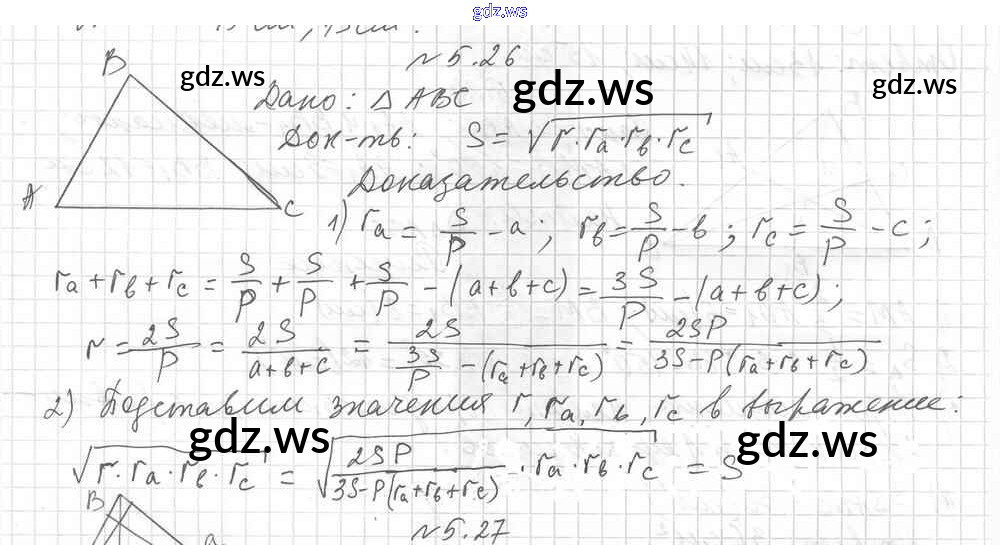 gdz.ws
№5.26
B
gdz.ws
gdz.ws
gdz.ws
Дано: △ABC
Док-ть: S = √(r·ra·rв·rc)
Доказательство.
A
C
1) ra = S/P - a; rв = S/P - в; rc = S/P - c;
ra + rв + rc = S/P + S/P + S/P - (a+в+c) = 3S/P - (a+в+c);
r = 2S/P = 2S/(a+в+c) = 2S/(3S/P - (ra+rв+rc)) = 2SP/(3S-P(ra+rв+rc))
2) Подставим значения r, ra, rв, rc в выражение:
gdz.ws
gdz.ws
√(r·ra·rв·rc) = √(2SP/(3S-P(ra+rв+rc)) · ra·rв·rc) = S
B
№5.27